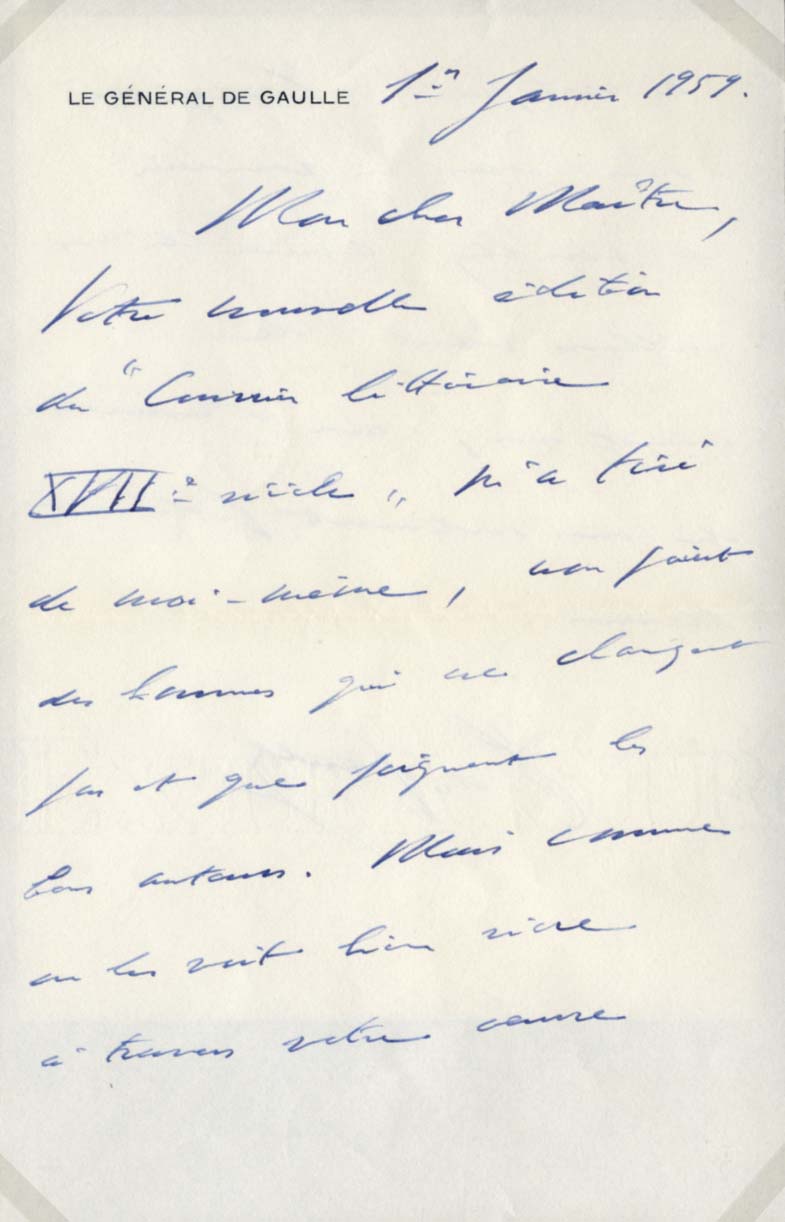 LE GÉNÉRAL DE GAULLE 1er Janvier 1959.
Mon cher Maître,
Votre nouvelle édition
du "Courrier littéraire
XVIIe siècle" m'a tiré
de moi-même, non point
des hommes qui ne changent
pas et que peignent les
bons auteurs. Mais comme
on les voit bien vivre
à travers votre œuvre